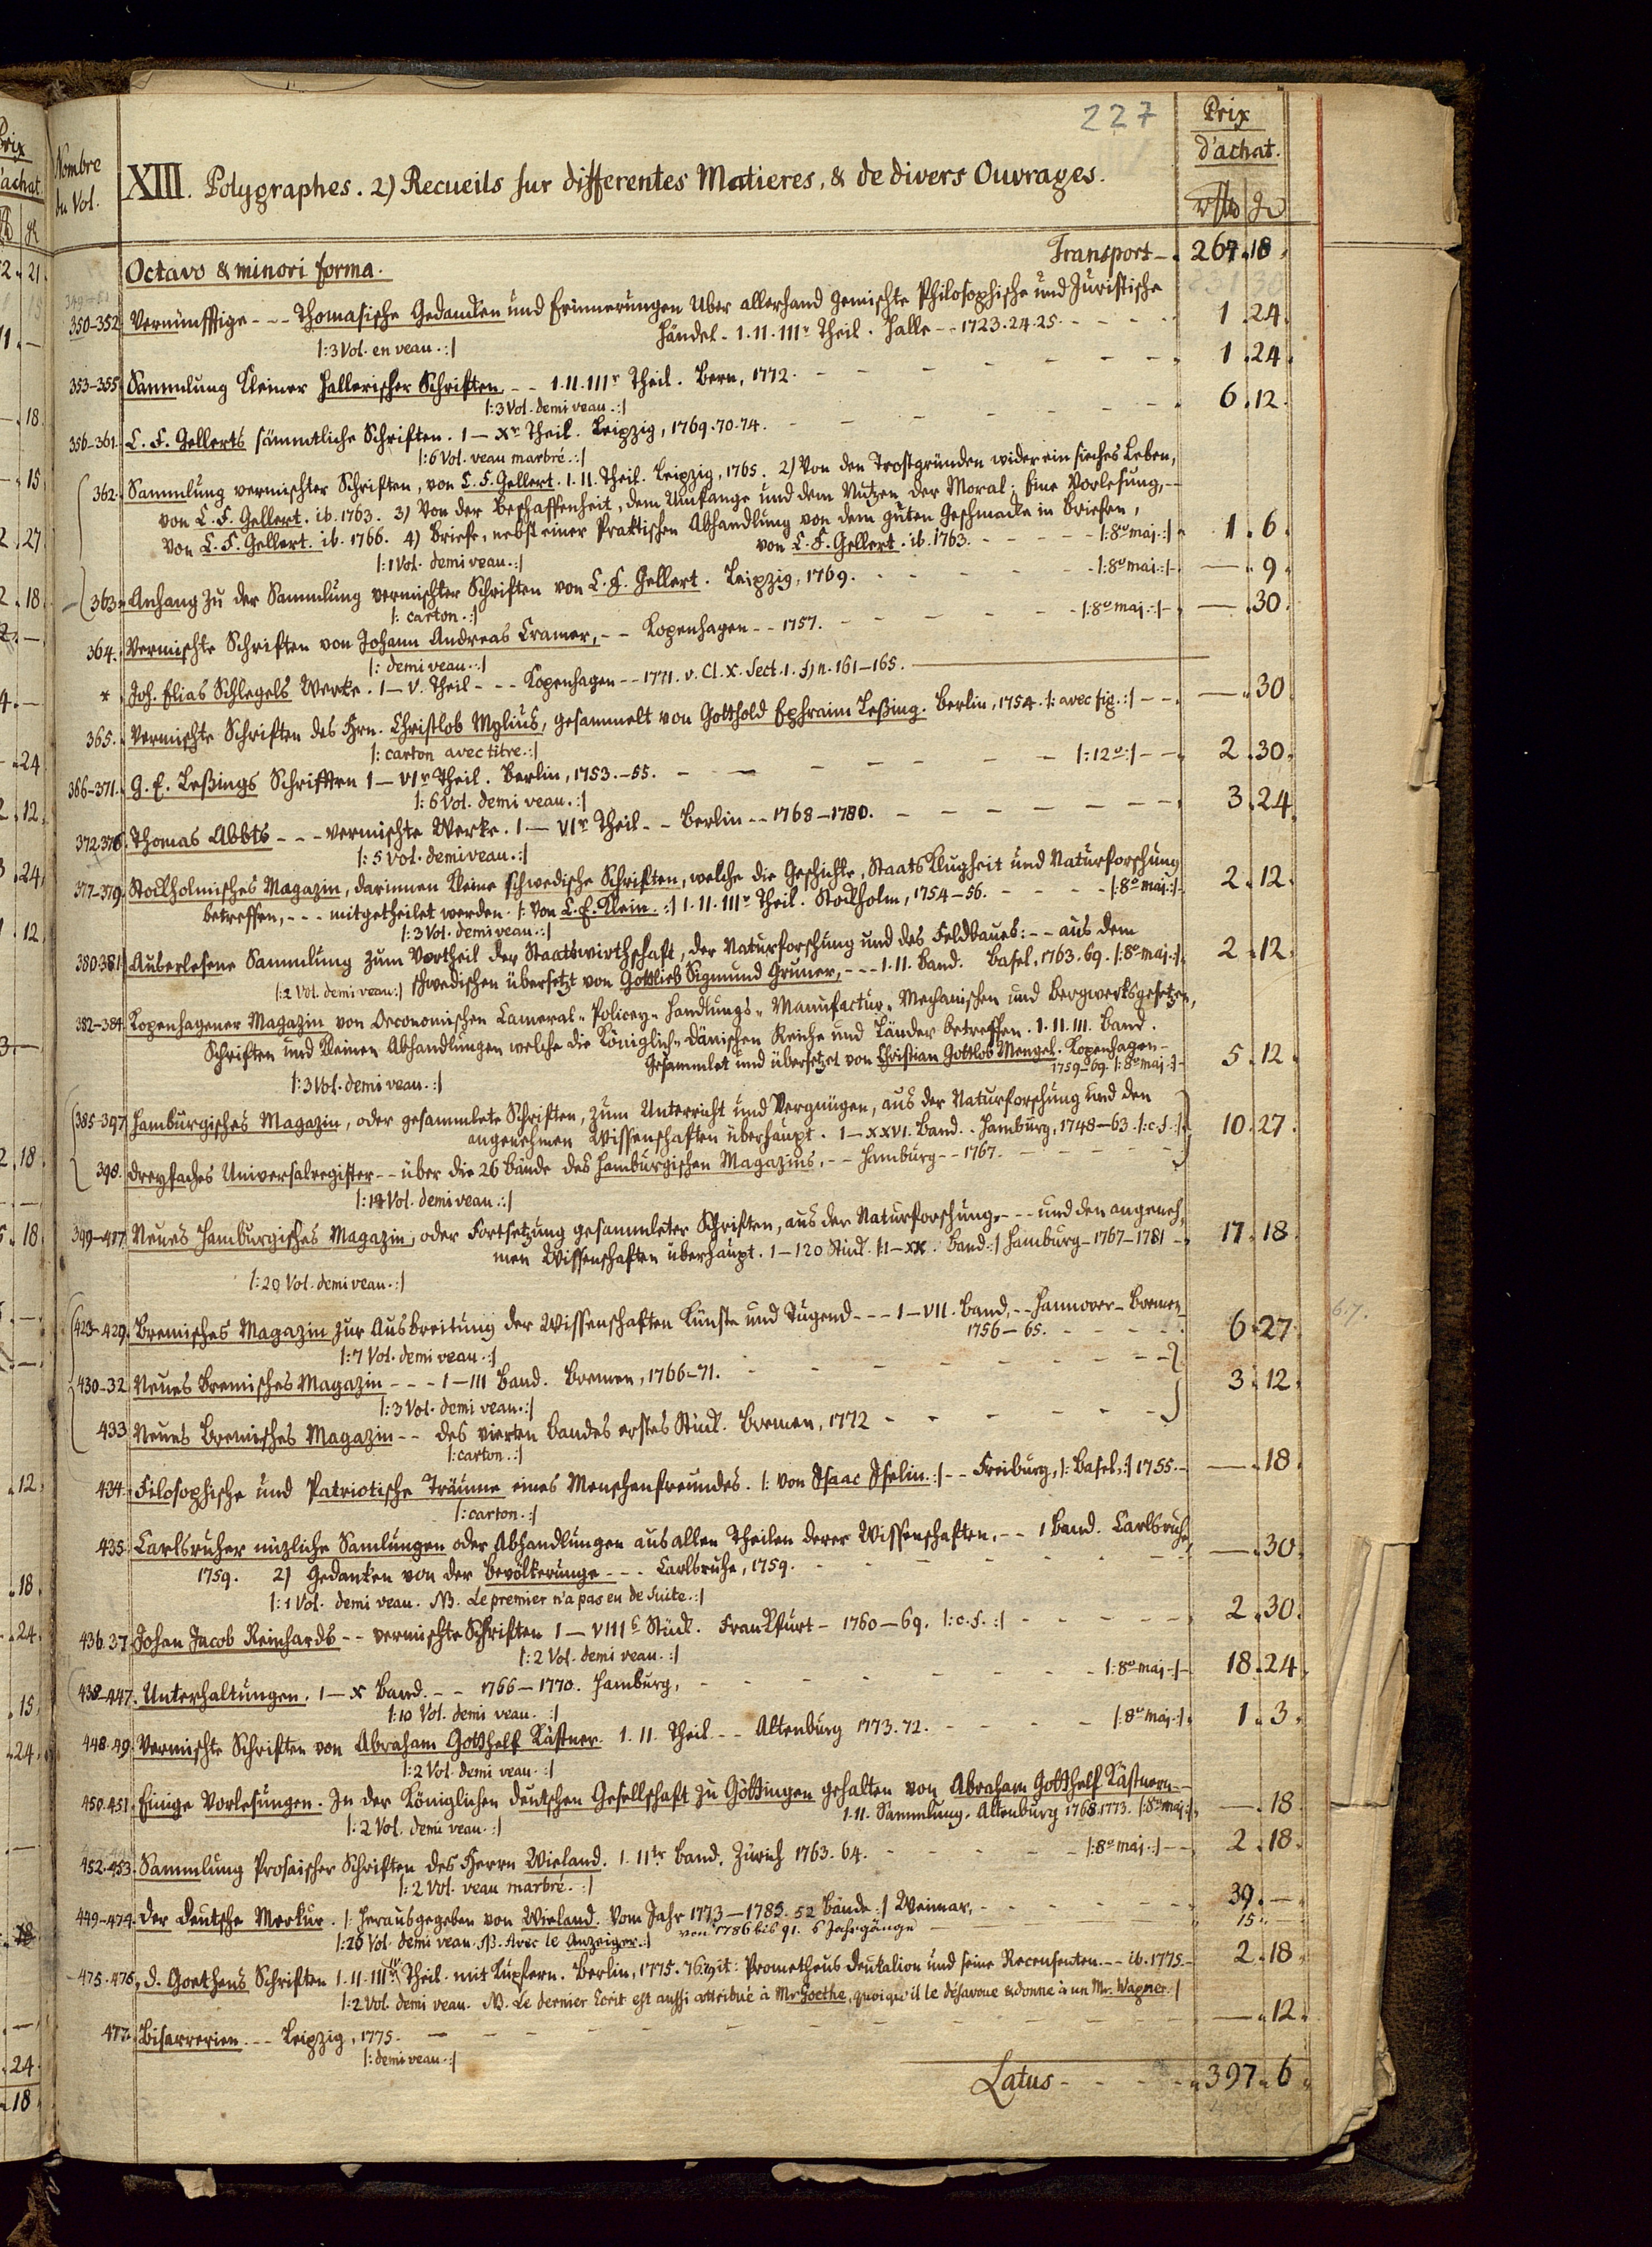 227
Nombre du Vol.
XIII. Polygraphes. 2) Recueils sur differentes Matieres, & de divers Ouvrages.
Prix d'achat.
Octavo & minori forma.
Transport - 264.18.
350-352. Vernünfftige - - - Thomasische Gedancken und Erinnerungen Uber allerhand Gemischte Philosophische und Juristische
Händel. I. II. IIIr Theil. Halle - - 1723.24.25. - - - - 1.24.
|: 3 Vol. en veau. :|
353-355. Sammlung kleiner Hallerischer Schriften. - - I. II. IIIr Theil. Bern, 1772. - - - - - - 1.24.
|: 3 Vol. demi veau. :|
356-361. C. F. Gellerts sämmtliche Schriften. I - Xr Theil. Leipzig, 1769.70.74. - - - - - - 6.12.
|: 6 Vol. veau marbré. :|
362. Sammlung vermischter Schriften, von C. F. Gellert. I. II. Theil. Leipzig, 1765. 2) Von den Trostgründen wider ein sieches Leben,
von C. F. Gellert. ib. 1763. 3) Von der Beschaffenheit, dem Umfange und dem Nutzen der Moral; Eine Vorlesung, - -
von C. F. Gellert. ib. 1766. 4) Briefe, nebst einer Praktischen Abhandlung von dem guten Geschmacke in Briefen,
von C. F. Gellert. ib. 1763. - - - - - |: 8o maj. :| 1.6.
|: 1 Vol. demi veau. :|
363. Anhang zu der Sammlung vermischter Schriften von C. F. Gellert. Leipzig, 1769. - - - - - |: 8o maj. :| - — 9.
|: carton. :|
364. Vermischte Schriften von Johann Andreas Cramer, - - Kopenhagen - - 1757. - - - - |: 8o maj. :| - — .30.
|: demi veau. :|
* Joh. Elias Schlegels Werke. I - V. Theil - - - Kopenhagen - - 1771. v. Cl. X. Sect. 1. f) n. 161-165.
365. Vermischte Schriften des Hrn. Christlob Mylius, gesammelt von Gotthold Ephraim Leßing. Berlin, 1754. |: avec fig. :| - - — .30.
|: carton avec titre. :|
366-371. G. E. Leßings Schrifften I - VIr Theil. Berlin, 1753.-55. - - - - - - |: 12o :| - - 2.30.
|: 6 Vol. demi veau. :|
372.376. Thomas Abbts - - - vermischte Werke. I - VIr Theil - - Berlin - - 1768-1780. - - - - - - 3.24.
|: 5 Vol. demi veau. :|
377-379. Stockholmisches Magazin, darinnen kleine schwedische Schriften, welche die Geschichte, Staats Klugheit und Naturforschung
betreffen, - - - mitgetheilet werden. |: von C. E. Klein. :| I. II. IIIr Theil. Stockholm, 1754-56. - - - - |: 8o maj. :| 2.12.
|: 3 Vol. demi veau. :|
380.381. Auserlesene Sammlung zum Vortheil der Staatswirthschaft, der Naturforschung und des Feldbaues: - - aus dem
schwedischen übersetzt von Gottlieb Sigmund Gruner, - - - I. II. Band. Basel, 1763.69. |: 8o maj. :| 2.12.
|: 2 Vol. demi veau. :|
382-384. Kopenhagener Magazin von Oeconomischen Cameral- Policey- Handlungs- Manufactur- Mechanischen und Bergwerksgesetzen,
Schriften und kleinen Abhandlungen welche die Königlich-Dänischen Reiche und Länder betreffen. I. II. III. Band.
Gesammlet und übersetzet von Christian Gottlob Mengel. Kopenhagen -
1759-69. |: 8o maj. :| - 5.12.
|: 3 Vol. demi veau. :|
385-397. Hamburgisches Magazin, oder gesammlete Schriften, zum Unterricht und Vergnügen, aus der Naturforschung und den
angenehmen Wissenschaften überhaupt. I - XXVI. Band. - Hamburg, 1748-63. |: c. f. :| 10.27.
398. Dreyfaches Universalregister - - über die 26 Bände des Hamburgischen Magazins, - - Hamburg - - 1767. - - - -
|: 14 Vol. demi veau. :|
399-417. Neues Hamburgisches Magazin, oder Fortsetzung gesammleter Schriften, aus der Naturforschung, - - - und den angeneh,
men Wissenschaften überhaupt. 1 - 120 Stück. |: I - XX. Band. :| Hamburg - 1767-1781 - 17.18.
|: 20 Vol. demi veau. :|
423-429. Bremisches Magazin zur Ausbreitung der Wissenschaften Künste und Tugend - - - I - VII. Band. - - Hannover - Bremen
1756-65. - - - - 6.27.
|: 7 Vol. demi veau. :|
430-32. Neues Bremisches Magazin - - - I - III Band. Bremen, 1766-71. - - - - - - - 3.12.
|: 3 Vol. demi veau. :|
433. Neues Bremisches Magazin - - des vierten Bandes erstes Stück. Bremen, 1772 - - - - - -
|: carton. :|
434. Filosophische und Patriotische Träume eines Menschenfreundes. |: von Isaac Iselin. :| - - Freiburg, |: Basel, :| 1755. - — .18.
|: carton. :|
435. Carlsruher nüzliche Samlungen oder Abhandlungen aus allen Theilen derer Wissenschaften, - - 1 Band. Carlsruhe,
1759. 2) Gedanken von der Bevölkerunge - - - Carlsruhe, 1759. - - - - - - — .30.
|: 1 Vol. demi veau. NB. Le premier n'a pas eu de suite. :|
436.37. Johan Jacob Reinhards - - vermischte Schriften I - VIIIt Stück. Franckfurt - 1760-69. |: c. f. :| - - - - - 2.30.
|: 2 Vol. demi veau. :|
438-447. Unterhaltungen. I - X Band. - - 1766-1770. Hamburg, - - - - - - |: 8o maj. :| - 18.24.
|: 10 Vol. demi veau. :|
448.49. Vermischte Schriften von Abraham Gotthelf Kästner. I. II. Theil - - Altenburg 1773.72. - - - - |: 8o maj. :| 1.3.
|: 2 Vol. demi veau. :|
450.451. Einige Vorlesungen. In der Königlichen deutschen Gesellschaft zu Göttingen gehalten von Abraham Gotthelf Kästnern - -
I. II. Sammlung. Altenburg 1768.1773. |: 8o maj. :| — .18.
|: 2 Vol. demi veau. :|
452.453. Sammlung Prosaischer Schriften des Herrn Wieland. I. IItr Band. Zürich 1763.64. - - - - |: 8o maj. :| - - 2.18.
|: 2 Vol. veau marbré. :|
449-474. Der Deutsche Merkur. |: herausgegeben von Wieland. Vom Jahr 1773-1785. 52 Bände :| Weimar, - - - - - 39. —
|: 26 Vol. demi veau. NB. Avec le Anzeiger. :| von 1786 bis 91. 6 Jahrgänge 15. —
475.476. D. Goethens Schriften I. II. III. IV Theil mit Kupfern. Berlin, 1775.76.79 it: Prometheus Deukalion und seine Recensenten. - - ib. 1775. - 2.18.
|: 2 Vol. demi veau. NB. Le dernier Ecrit est aussi attribué à Mr Goethe, quoiqu'il le désavoue & donne à un Mr. Wagner. :|
477. Bisarrerien. - - Leipzig, 1775. - - - - - - - — .12.
|: demi veau. :|
Latus - - - - 397.6.
6.7.